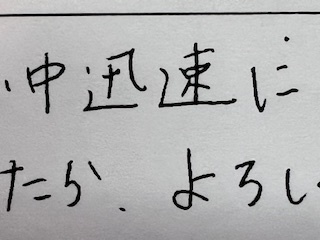 中迅速に
たか、よろし